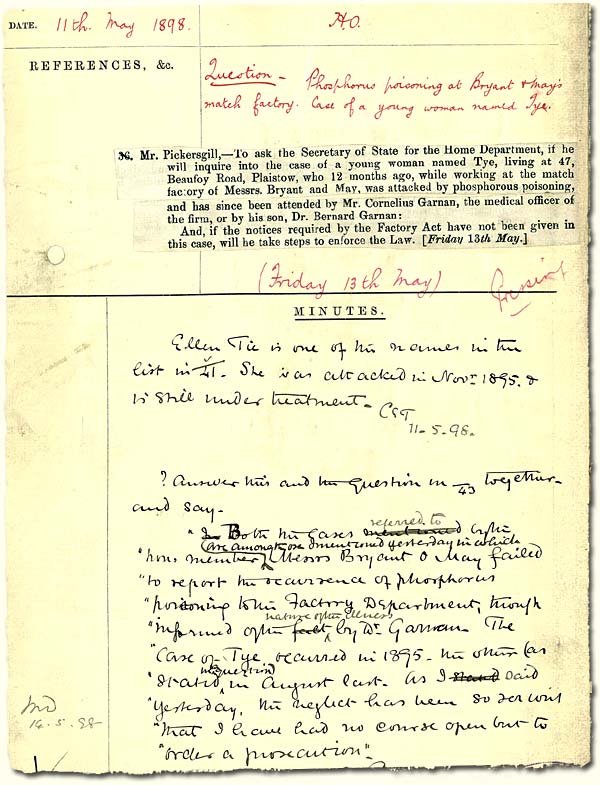 DATE. 11th. May 1898. H.O.
REFERENCES, &c.
Question - Phosphorus poisoning at Bryant & May's
match factory. Case of a young woman named Tye.
36. Mr. Pickersgill,—To ask the Secretary of State for the Home Department, if he
will inquire into the case of a young woman named Tye, living at 47,
Beaufoy Road, Plaistow, who 12 months ago, while working at the match
factory of Messrs. Bryant and May, was attacked by phosphorous poisoning,
and has since been attended by Mr. Cornelius Garnan, the medical officer of
the firm, or by his son, Dr. Bernard Garnan:
And, if the notices required by the Factory Act have not been given in
this case, will he take steps to enforce the Law. [Friday 13th May.]
(Friday 13th May)
Pressing
MINUTES.
Ellen Tie is one of the names in the
list in /41. She was attacked in Novr 1895. &
is still under treatment-
CET
11-5-98.
? Answer this and the question in /43 together
and say-
"Both the cases
referred to
mentioned by the
are among those I mentioned yesterday in which
"hon. member, Messrs Bryant & May failed
"to report the occurrence of phosphorus
"poisoning to the Factory Department, though
nature of the illness
"informed of the fact by Dr Garnan. The
"Case of Tye occurred in 1895. the other (as
in question
"stated in August last. As I stated said
"yesterday, the neglect has been so serious
"that I have had no course open but to
"order a prosecution".
14-5-98